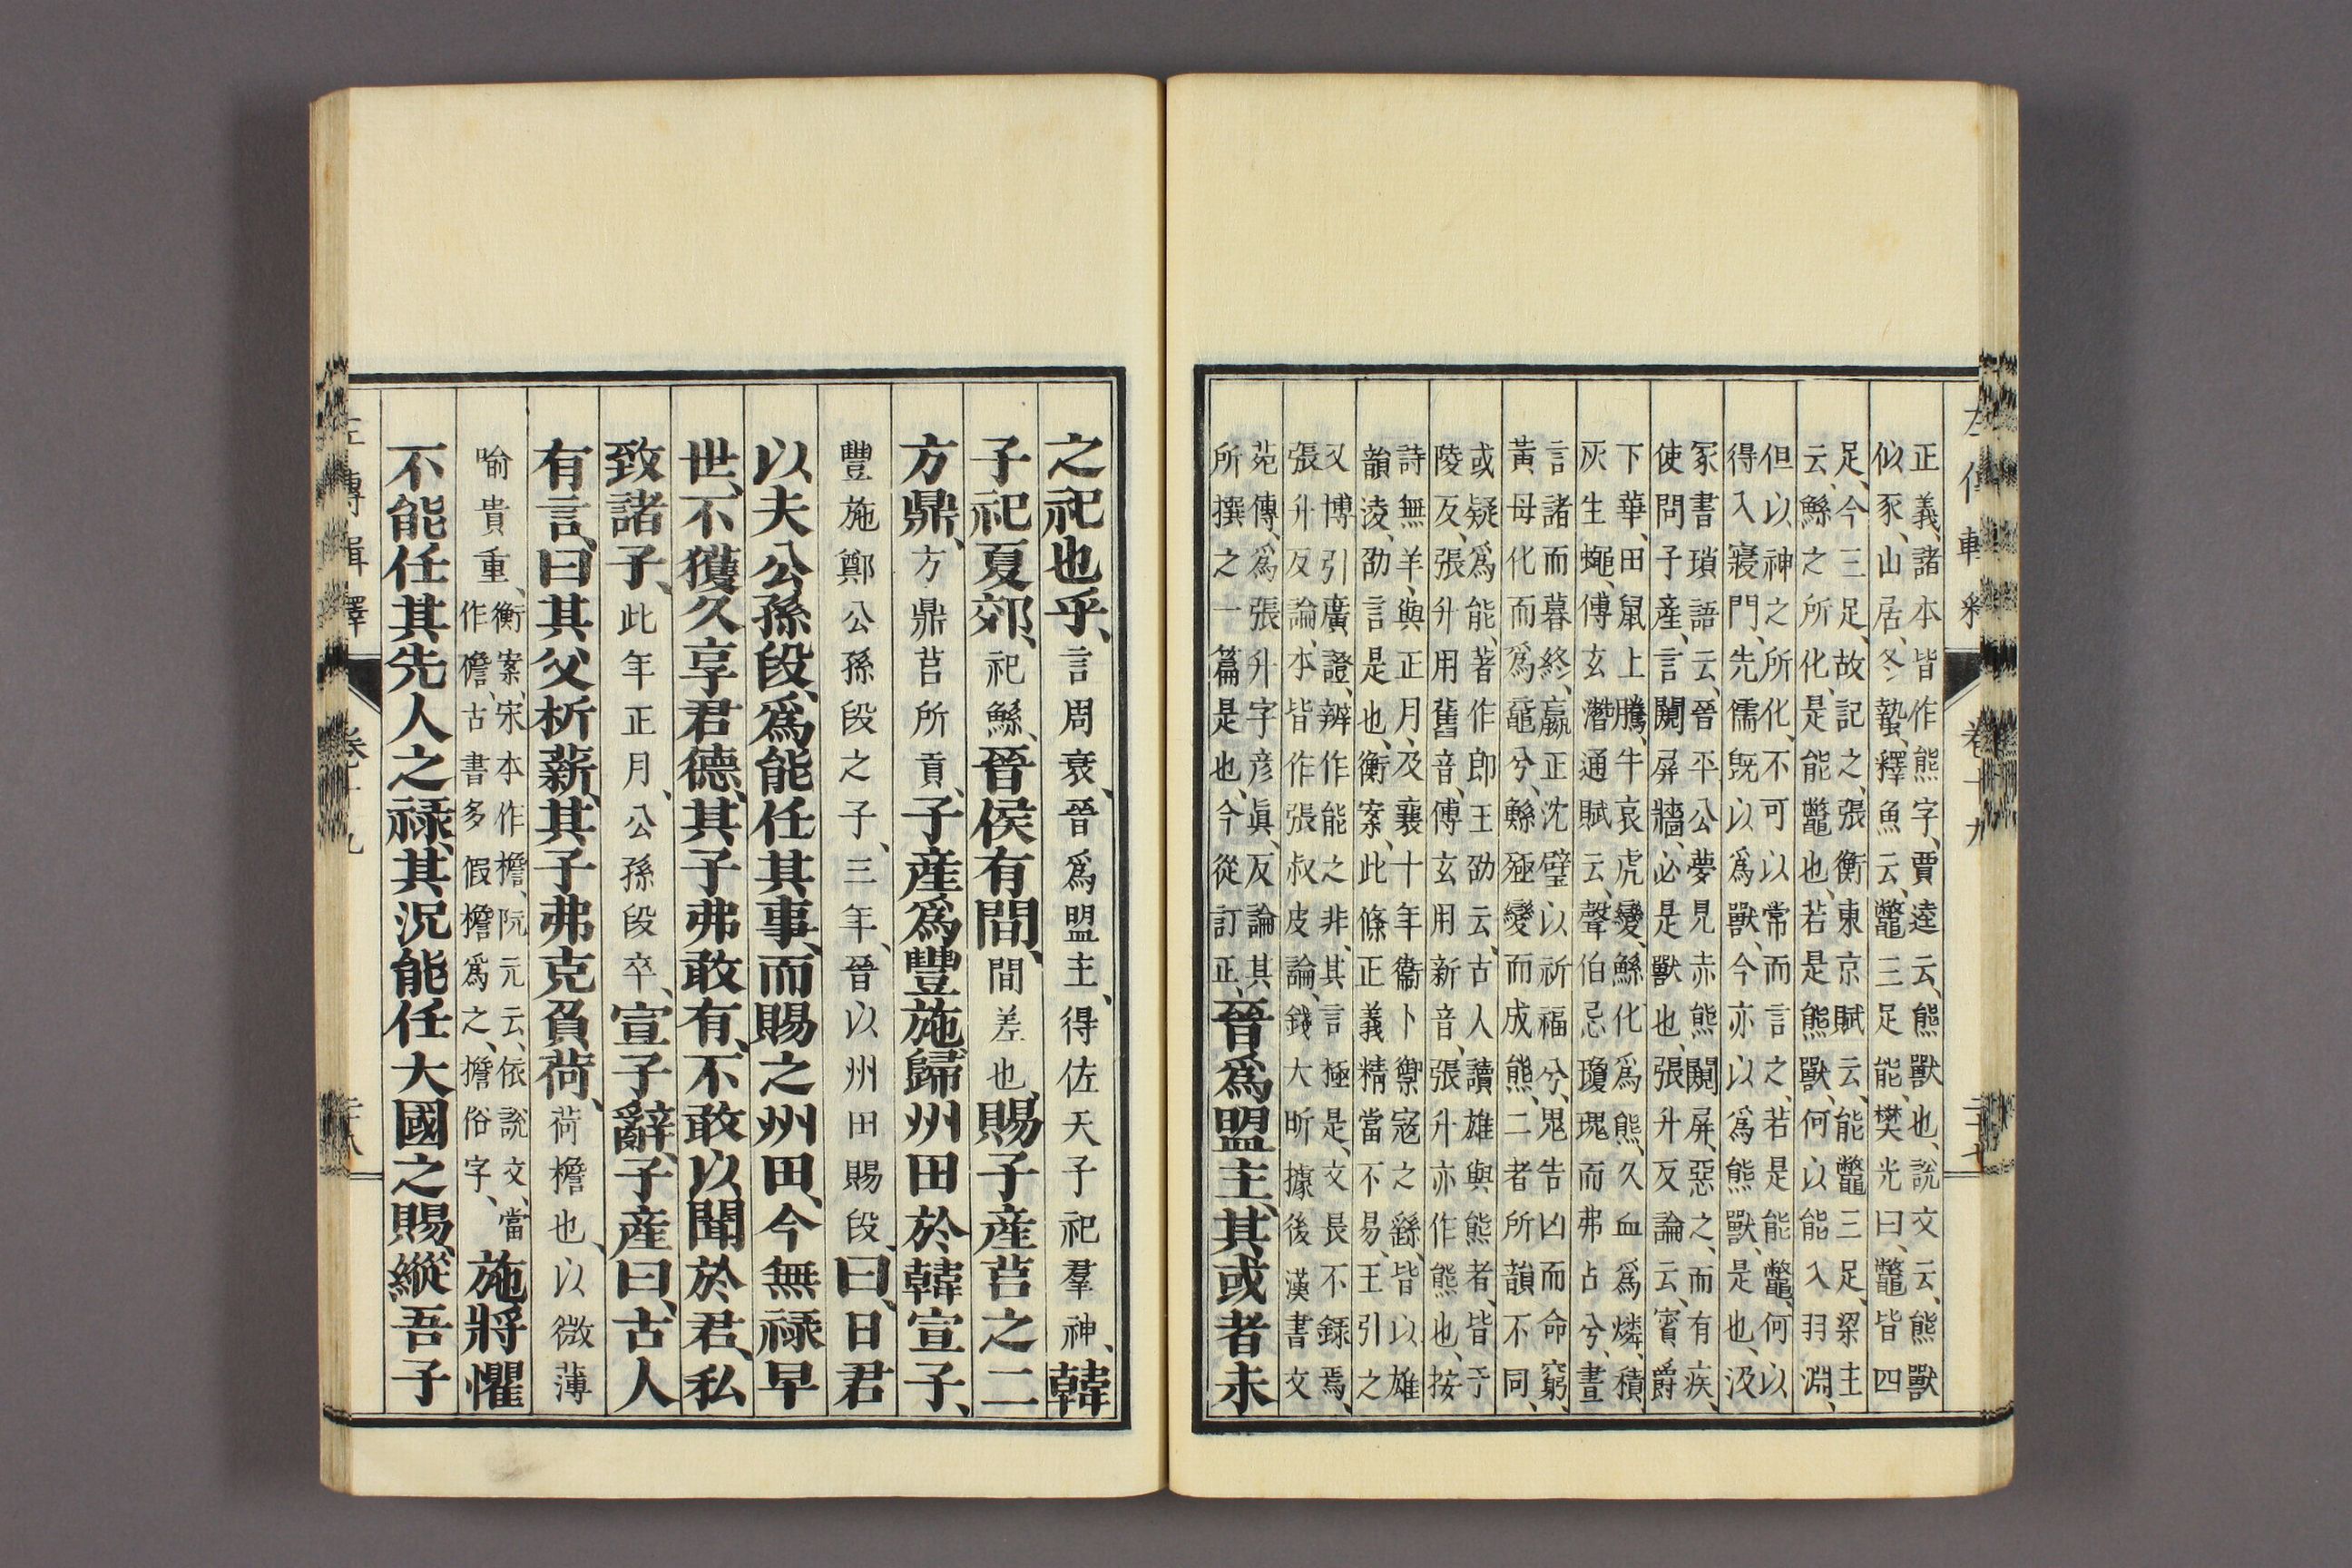 左傳輯釋 卷十九 二十七
正義、諸本皆作熊字、賈逵云、熊獸也、說文云、熊獸
似豕、山居、冬蟄、釋魚云、鼈三足能、樊光曰、鼈皆四
足、今三足、故記之、張衡東京賦云、能鼈三足、梁主
云、鯀之所化、是能鼈也、若是熊獸、何以能入羽淵、
但以神之所化、不可以常而言之、若是能鼈、何以
得入寢門、先儒既以爲獸、今亦以爲熊獸、是也、汲
冢書瑣語云、晉平公夢見赤熊闚屏、惡之、而有疾、
使問子產、言闚屏牆、必是獸也、張升反論云、賓爵
下華、田鼠上騰、牛哀虎變、鯀化爲熊、久血爲燐、積
灰生蠅、傅玄潛通賦云、聲伯忌瓊瑰而弗占兮、晝
言諸而暮終、嬴正沈璧以祈福兮、鬼告凶而命窮、
黃母化而爲黿兮、鯀殛變而成熊、二者所韻不同、
或疑爲能、著作郎王劭云、古人讀雄與熊者、皆于
陵反、張升用舊音、傅玄用新音、張升亦作熊也、按
詩無羊、與正月、及襄十年衞卜禦寇之繇、皆以雄
韻淩、劭言是也、衡案、此條正義精當不易、王引之
又博引廣證、辨作能之非、其言極是、文長不錄焉、
張升反論、本皆作張叔皮論、錢大昕據後漢書文
苑傳、爲張升字彥眞、反論其
所撰之一篇是也、今從訂正、晉爲盟主、其或者未
之祀也乎、言周衰、晉爲盟主、得佐天子祀羣神、韓
子祀夏郊、祀鯀、晉侯有間、間差也、賜子產莒之二
方鼎、方鼎莒所貢、子產爲豐施歸州田於韓宣子、
豐施鄭公孫段之子、三年、晉以州田賜段、曰、日君
以夫公孫段、爲能任其事、而賜之州田、今無祿早
世、不獲久享君德、其子弗敢有、不敢以聞於君、私
致諸子、此年正月、公孫段卒、宣子辭、子產曰、古人
有言、曰其父析薪、其子弗克負荷、荷檐也、以微薄
喻貴重、衡案、宋本作檐、阮元云、依說文、當
作儋、古書多假檐爲之、擔俗字、施將懼
不能任其先人之祿、其況能任大國之賜、縱吾子
左傳輯釋 卷十九 二十八